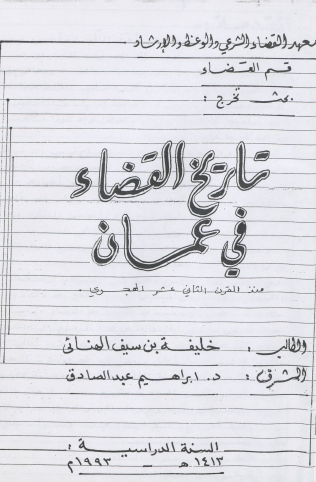 معهد القضاء الشرعي والوعظ والإرشاد
قسم القضاء
بحث تخرج :
تاريخ القضاء
في عمان
منذ القرن الثاني عشر الهجري .
الطالب : خليفة بن سيف الهنائي
المشرف : د. ابراهيم عبدالصادق
السنة الدراسية :
١٤١٣ هـ - ١٩٩٣م